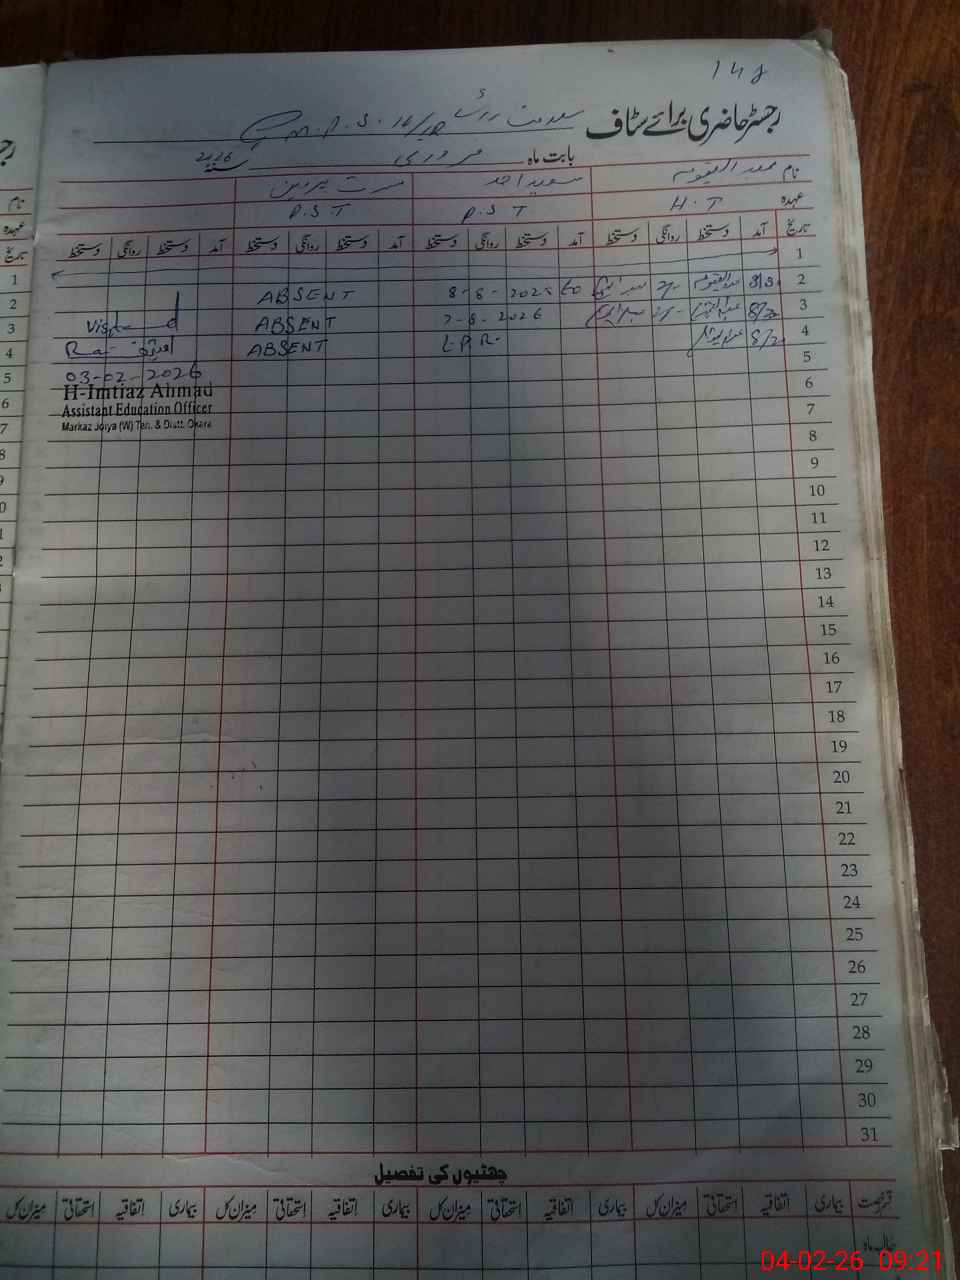 148
رجسٹر حاضری برائے سٹاف
بابت ماہ فروری
نام عبدالقیوم سعید احمد مسرت پروین
عہدہ H.T P.S.T P.S.T
تاریخ آمد دستخط روانگی دستخط آمد دستخط روانگی دستخط آمد دستخط روانگی دستخط آمد دستخط روانگی دستخط
1
2 8-8-2025 to ABSENT
3 7-8-2026 ABSENT
4 L.P.R. ABSENT
5
03-02-2026
6
H-Imtiaz Ahmad
Assistant Education Officer
7
Markaz Joiya (W) Teh. & Distt. Okara
8
9
10
11
12
13
14
15
16
17
18
19
20
21
22
23
24
25
26
27
28
29
30
31
چھٹیوں کی تفصیل
قسم رخصت بیماری اتفاقیہ استحقاقی میزان کل بیماری اتفاقیہ استحقاقی میزان کل بیماری اتفاقیہ استحقاقی میزان کل بیماری اتفاقیہ استحقاقی میزان کل
04-02-26 09:21